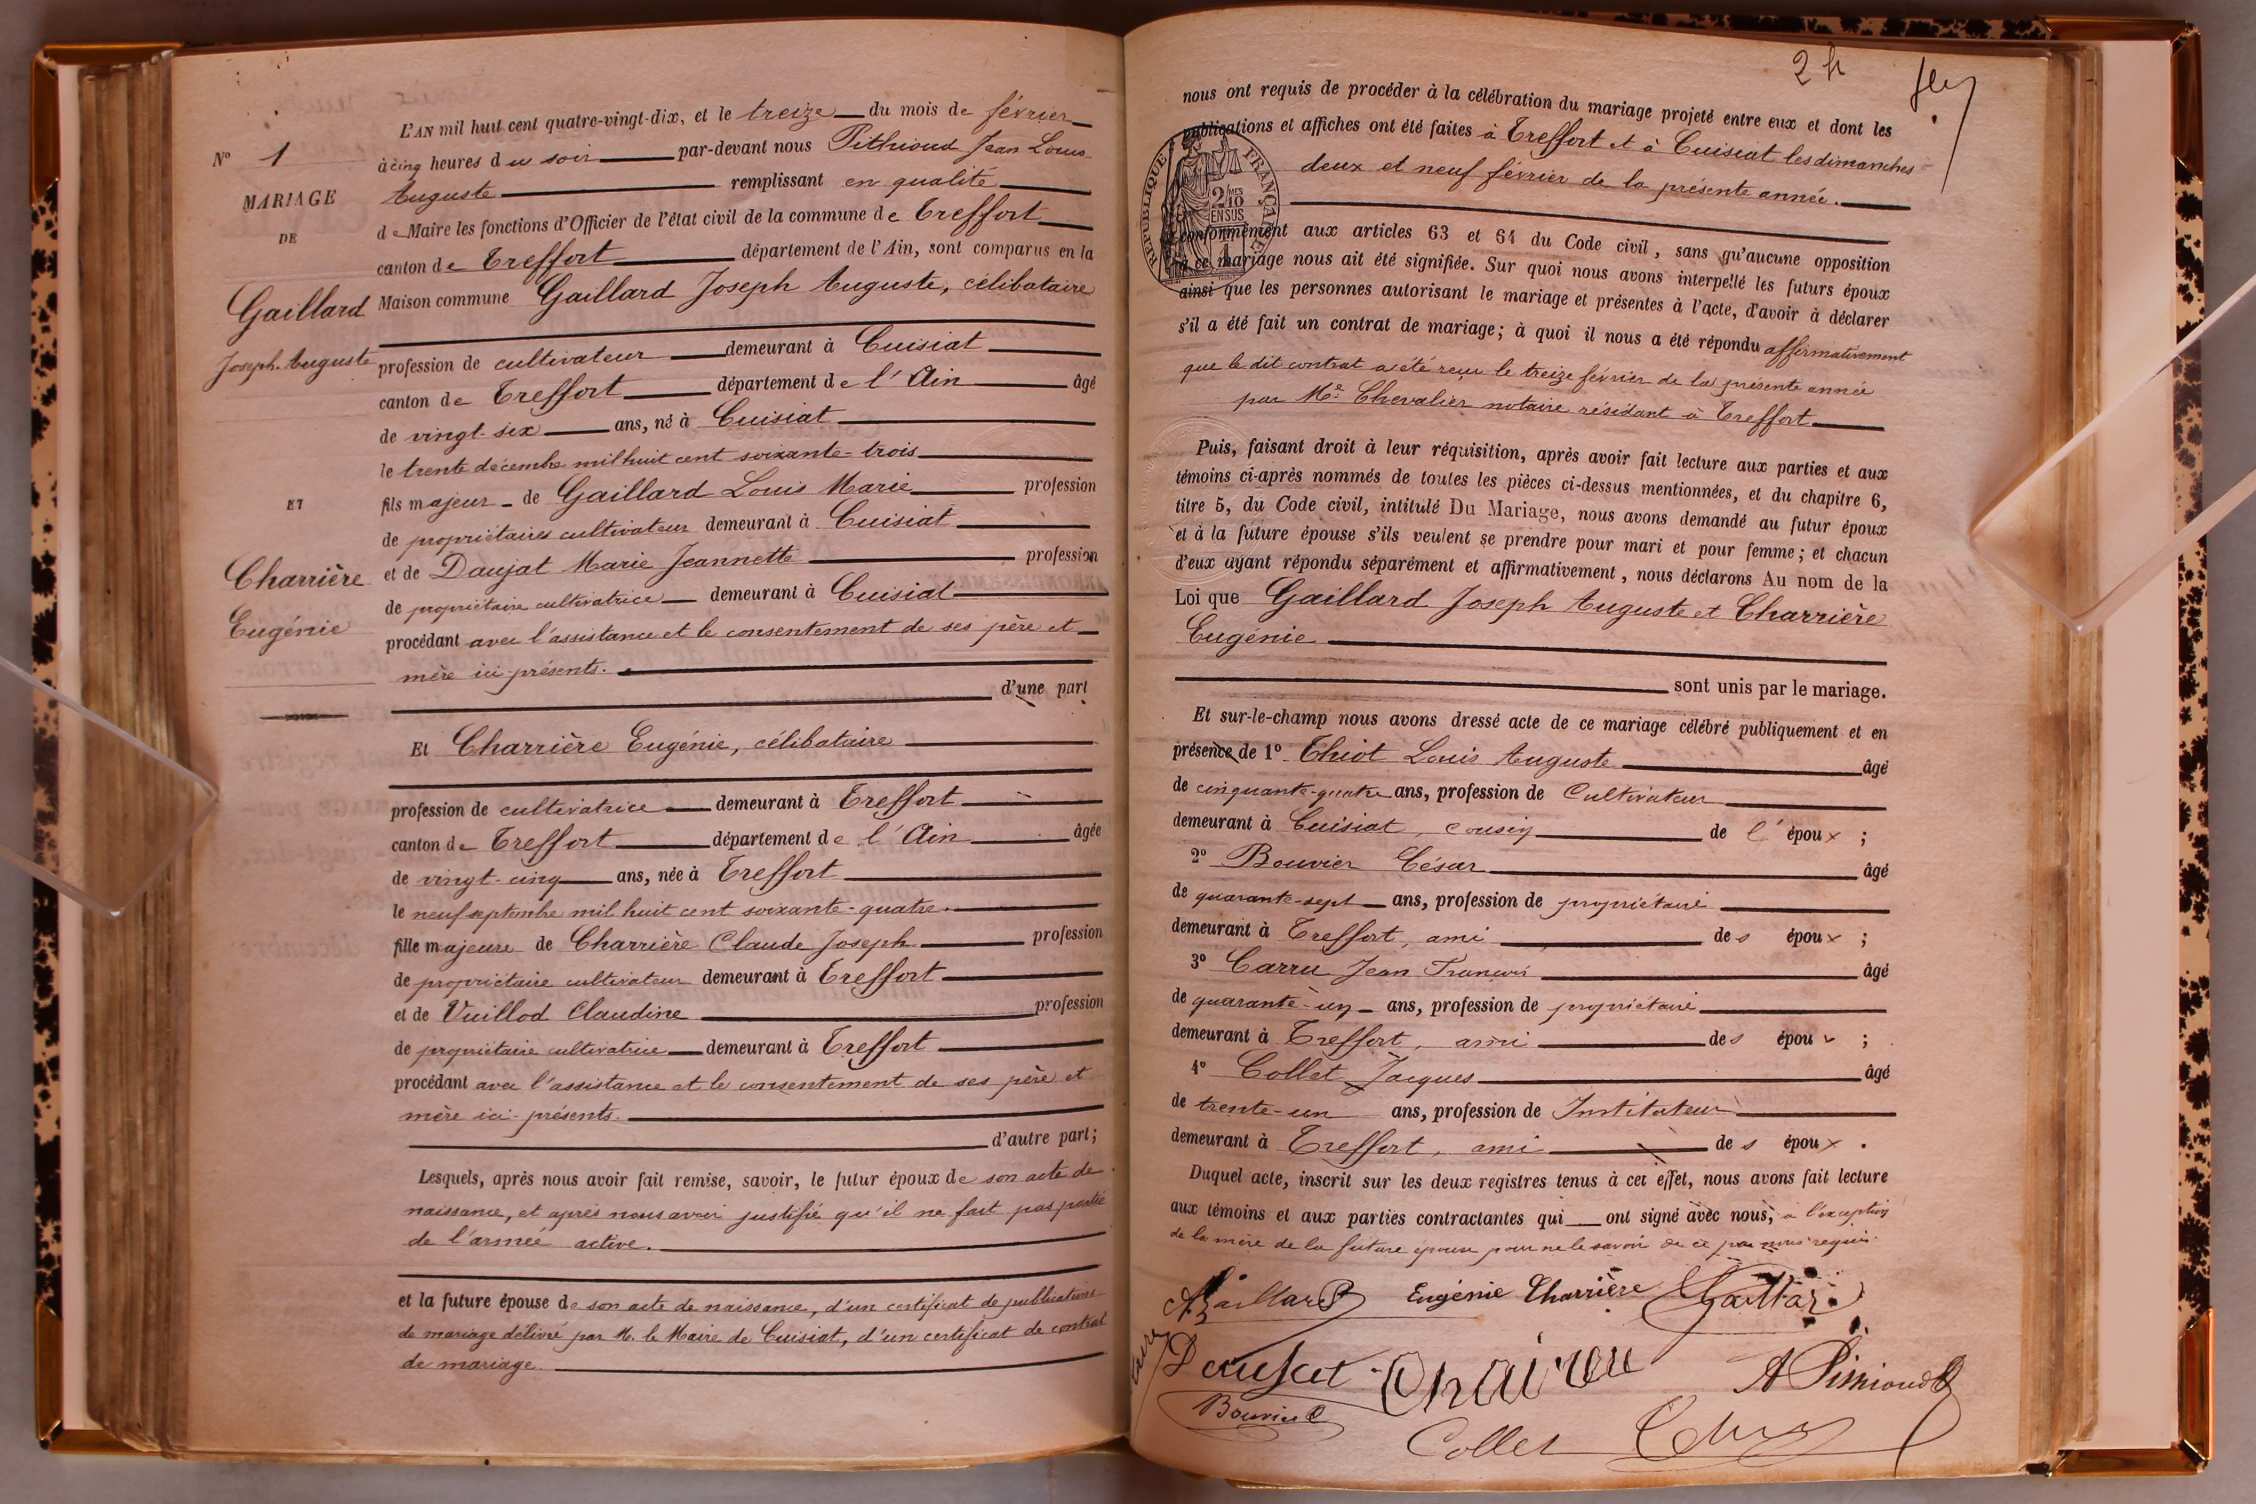 L'AN mil huit cent quatre-vingt-dix, et le treize du mois de février
N° 1
à cinq heures du soir par-devant nous Pithioud Jean Louis
MARIAGE
Auguste remplissant en qualité
de Maire les fonctions d'Officier de l'état civil de la commune de Treffort
DE
canton de Treffort département de l'Ain, sont comparus en la
Gaillard
Maison commune Gaillard Joseph Auguste, célibataire
Joseph-Auguste
profession de cultivateur demeurant à Cuisiat
canton de Treffort département de l'Ain âgé
de vingt-six ans, né à Cuisiat
le trente décembre mil huit cent soixante-trois
fils majeur de Gaillard Louis Marie profession
ET
de propriétaires cultivateur demeurant à Cuisiat
Charrière
et de Daujat Marie Jeannette profession
de propriétaire cultivatrice demeurant à Cuisiat
Eugénie
procédant avec l'assistance et le consentement de ses père et
mère ici-présents.
d'une part
Et Charrière Eugénie, célibataire
profession de cultivatrice demeurant à Treffort
canton de Treffort département de l'Ain âgée
de vingt-cinq ans, née à Treffort
le neuf septembre mil huit cent soixante-quatre.
fille majeure de Charrière Claude Joseph profession
de propriétaire cultivateur demeurant à Treffort
et de Vuillod Claudine profession
de propriétaire cultivatrice demeurant à Treffort
procédant avec l'assistance et le consentement de ses père et
mère ici-présents.
d'autre part;
Lesquels, après nous avoir fait remise, savoir, le futur époux de son acte de
naissance, et après nous avoir justifié qu'il ne fait pas partie
de l'armée active.
et la future épouse de son acte de naissance, d'un certificat de publications
de mariage délivré par M. le Maire de Cuisiat, d'un certificat de contrat
de mariage
2 h
nous ont requis de procéder à la célébration du mariage projeté entre eux et dont les
publications et affiches ont été faites à Treffort et à Cuisiat les dimanches
deux et neuf février de la présente année.
RÉPUBLIQUE FRANÇAISE
2/10 MES
EN SUS
conformément aux articles 63 et 64 du Code civil, sans qu'aucune opposition
à ce mariage nous ait été signifiée. Sur quoi nous avons interpellé les futurs époux
ainsi que les personnes autorisant le mariage et présentes à l'acte, d'avoir à déclarer
s'il a été fait un contrat de mariage; à quoi il nous a été répondu affirmativement
que le dit contrat a été reçu le treize février de la présente année
par Me Chevalier notaire résidant à Treffort
Puis, faisant droit à leur réquisition, après avoir fait lecture aux parties et aux
témoins ci-après nommés de toutes les pièces ci-dessus mentionnées, et du chapitre 6,
titre 5, du Code civil, intitulé Du Mariage, nous avons demandé au futur époux
et à la future épouse s'ils veulent se prendre pour mari et pour femme; et chacun
d'eux ayant répondu séparément et affirmativement, nous déclarons Au nom de la
Loi que Gaillard Joseph Auguste et Charrière
Eugénie
sont unis par le mariage.
Et sur-le-champ nous avons dressé acte de ce mariage célébré publiquement et en
présence de 1° Thiot Louis Auguste âgé
de cinquante-quatre ans, profession de Cultivateur
demeurant à Cuisiat, cousin de l'époux;
2° Bouvier César âgé
de quarante-sept ans, profession de propriétaire
demeurant à Treffort, ami des époux;
3° Carru Jean François âgé
de quarante-un ans, profession de propriétaire
demeurant à Treffort, ami des époux;
4° Collet Jacques âgé
de trente-un ans, profession de Instituteur
demeurant à Treffort, ami des époux.
Duquel acte, inscrit sur les deux registres tenus à cet effet, nous avons fait lecture
aux témoins et aux parties contractantes qui ont signé avec nous, à l'exception
de la mère de la future épouse pour ne le savoir de ce par nous requis.
A Gaillard Eugénie Charrière Gaillard
Bouvier C
Collet